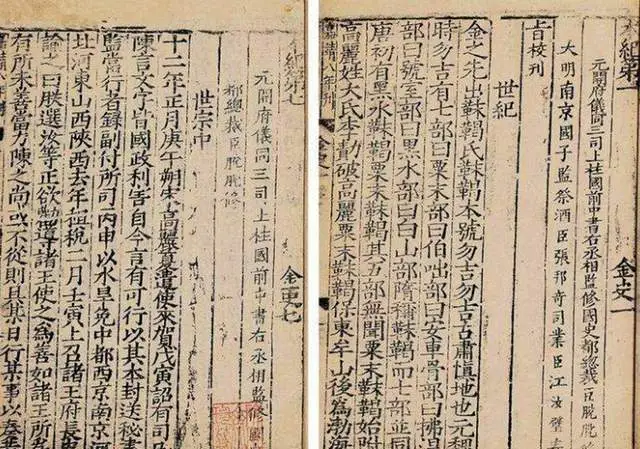 紀第一 金史一
元開府儀同三司上柱國前中書右丞相監修國史都總裁臣脫脫
大明南京國子監祭酒臣張邦奇司業臣江汝璧
旨校刊
世紀
金之先出靺鞨氏靺鞨本號勿吉勿吉古肅慎地也元魏
時勿吉有七部曰粟末部曰伯咄部曰安車骨部曰拂涅
部曰號室部曰黑水部曰白山部隋稱靺鞨而七部並同
唐初有黑水靺鞨粟末靺鞨其五部無聞粟末靺鞨始附
高麗姓大氏李勣破高麗粟末靺鞨保東牟山後爲渤海
紀第七 金史七
元開府儀同三司上柱國前中書右丞相監修國
都總裁臣脫脫修
世宗中
十二年正月庚午朔宋高麗夏遣使來賀戊寅詔有司
陳言文字皆國政利害自今言有可行以其本封送秘書
監當行者錄副付所司丙申以水旱免中都西京南京河
北河東山西陝西去年租稅二月壬寅上召諸王府長史
諭之曰朕選汝等正欲勸導諸王使之爲善如諸王所爲
有所未善當力陳之尚或不從則具某日行某事以奏